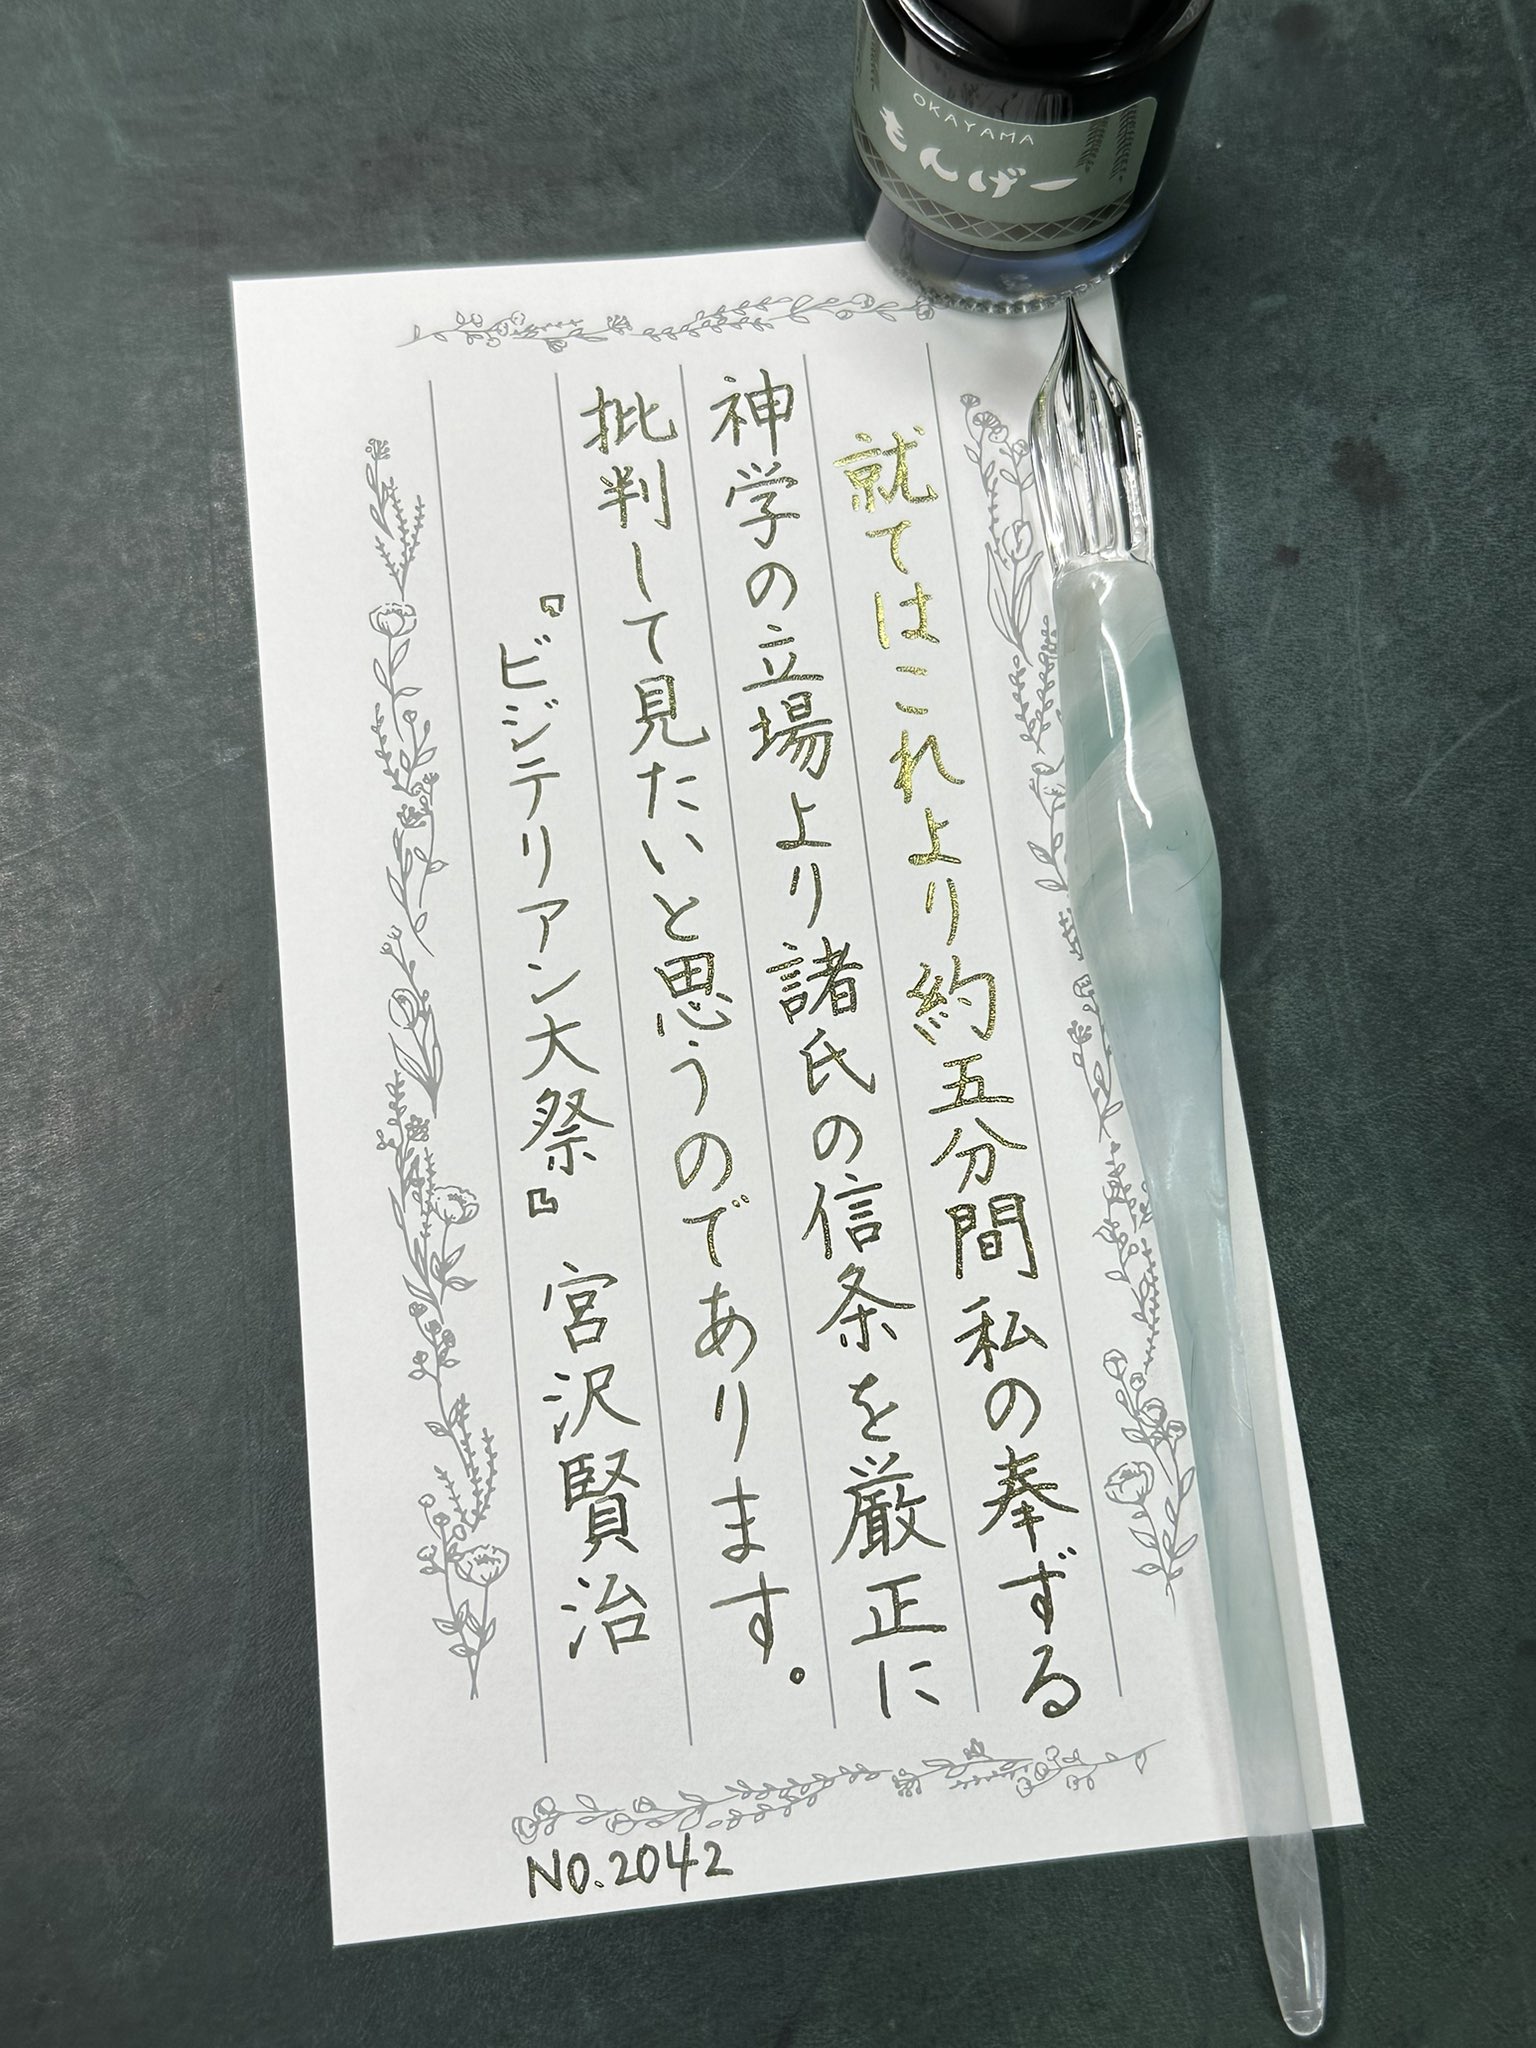 OKAYAMA
もんげー
就てはこれより約五分間私の奉ずる
神学の立場より諸氏の信条を厳正に
批判して見たいと思うのであります。
『ビジテリアン大祭』 宮沢賢治
NO.2042